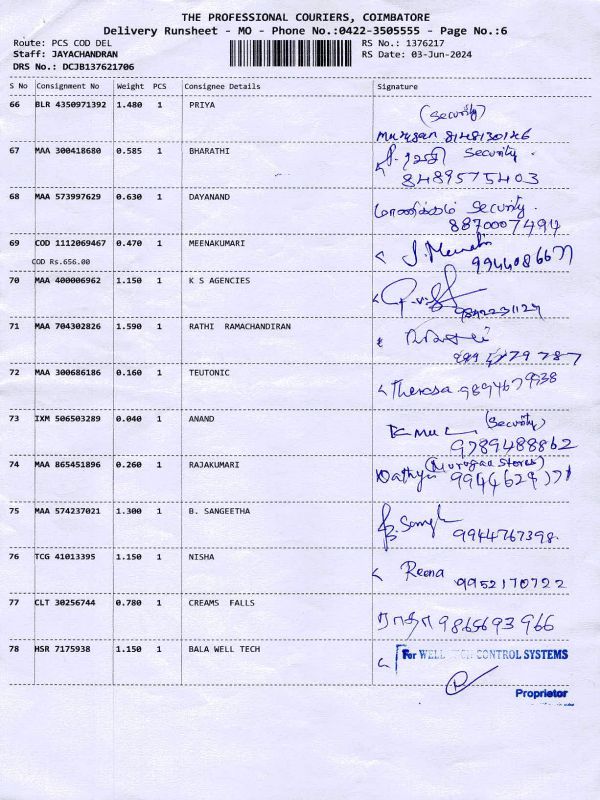 THE PROFESSIONAL COURIERS, COIMBATORE
Delivery Runsheet - MO - Phone No.:0422-3505555 - Page No.:6
Route: PCS COD DEL RS No.: 1376217
Staff: JAYACHANDRAN RS Date: 03-Jun-2024
DRS No.: DCJB137621706
S No Consignment No Weight PCS Consignee Details Signature
66 BLR 4350971392 1.480 1 PRIYA (Security)
Murugan
67 MAA 300418680 0.585 1 BHARATHI Security.
8489575403
68 MAA 573997629 0.630 1 DAYANAND Security.
8870007494
69 COD 1112069467 0.470 1 MEENAKUMARI
COD Rs.656.00
70 MAA 400006962 1.150 1 K S AGENCIES
71 MAA 704302826 1.590 1 RATHI RAMACHANDIRAN
72 MAA 300686186 0.160 1 TEUTONIC Theresa
73 IXM 506503289 0.040 1 ANAND (Security)
9789488862
74 MAA 865451896 0.260 1 RAJAKUMARI (Murugan Stores)
75 MAA 574237021 1.300 1 B. SANGEETHA
9944767398.
76 TCG 41013395 1.150 1 NISHA Reena
9952170722
77 CLT 30256744 0.780 1 CREAMS FALLS ராதா 9865693966
78 HSR 7175938 1.150 1 BALA WELL TECH For WELL TECH CONTROL SYSTEMS
Proprietor